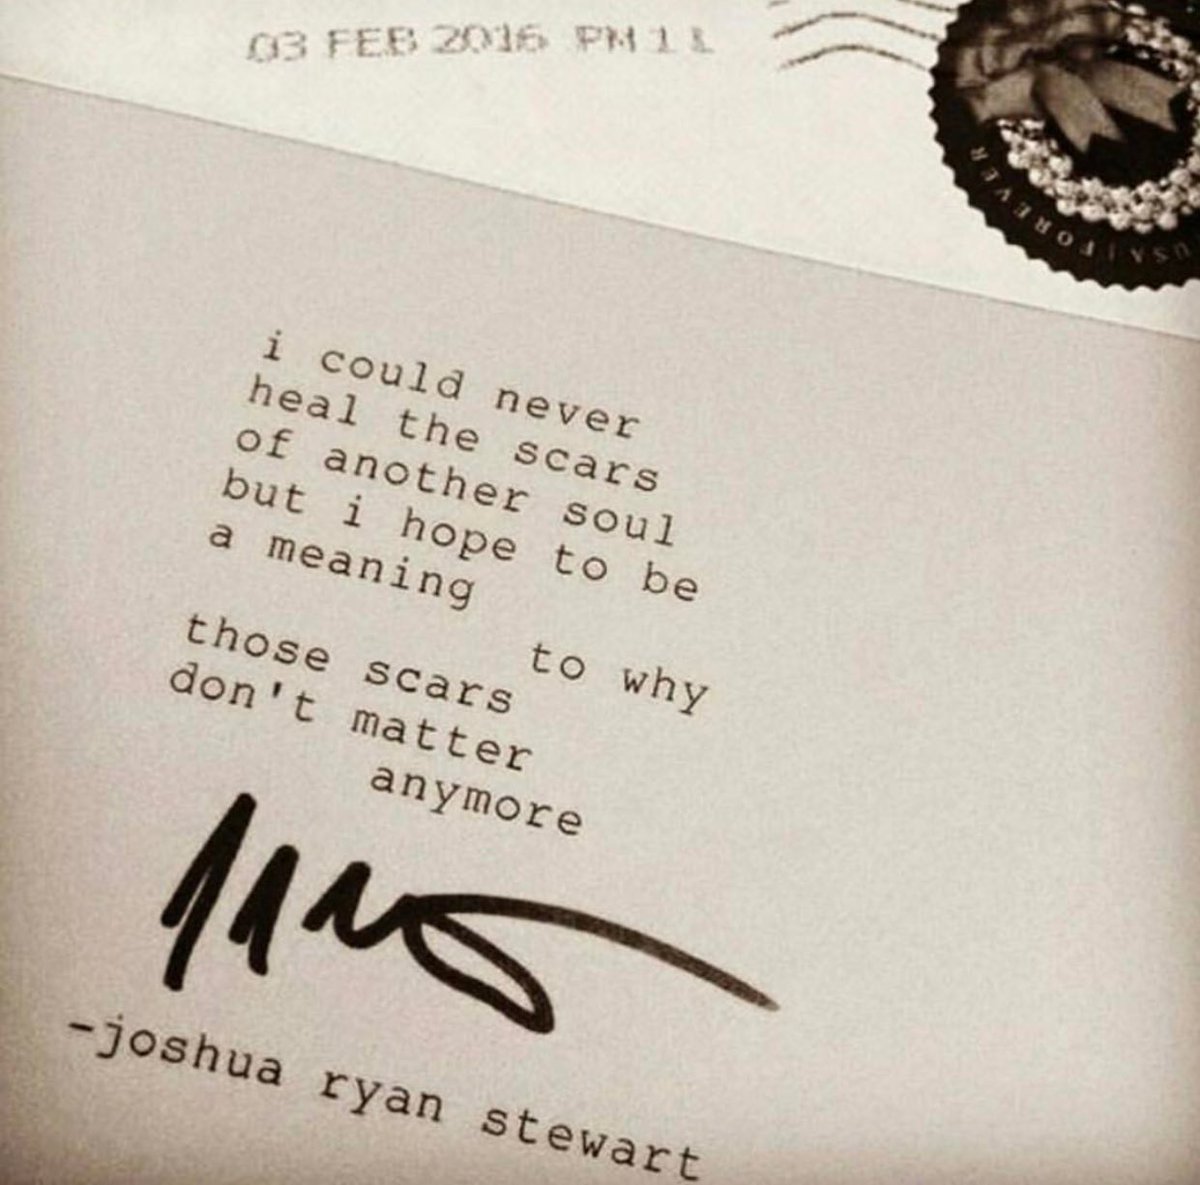 03 FEB 2016 PM 11
USA | FOREVER
i could never
heal the scars
of another soul
but i hope to be
a meaning
to why
those scars
don't matter
anymore
-joshua ryan stewart